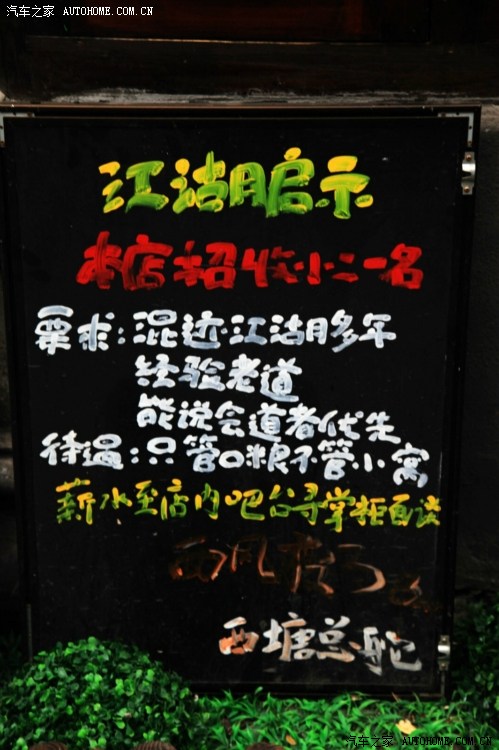 汽车之家 AUTOHOME.COM.CN
江湖启示
本店招收小二一名
要求:混迹江湖多年
经验老道
能说会道者优先
待遇:只管口粮不管小窝
薪水至店内吧台寻掌柜面谈
西塘总舵
汽车之家 AUTOHOME.COM.CN